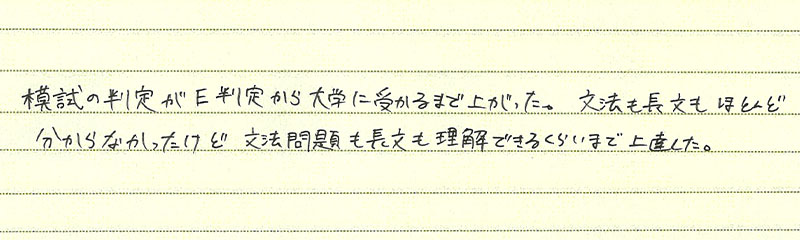 模試の判定がE判定から大学に受かるまで上がった。 文法も長文もほとんど
分からなかったけど 文法問題も長文も理解できるくらいまで上達した。